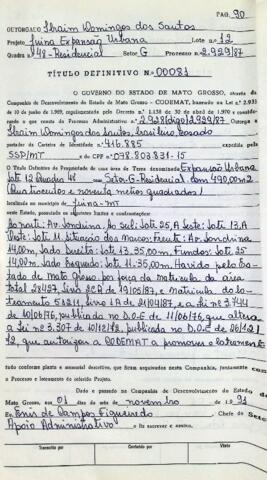 PAG. 90
OUTORGADO Ibraim Domingos dos Santos
Projeto Juina Expansão Urbana Lote n.º 12
Quadra n.º 48-Residencial Setor G Processo n.º 2.929/87
TÍTULO DEFINITIVO N.º 00081
O GOVERNO DO ESTADO DE MATO GROSSO, através da
Companhia de Desenvolvimento do Estado de Mato Grosso - CODEMAT, baseado na Lei n.º 2.933
de 10 de junho de 1969, regulamentada pelo Decreto n.º 1.138 de 30 de abril de 1970 e considerando
o que consta do Processo Administrativo n.º 2.928(digo)2.929/87 Outorga a
Ibraim Domingos dos Santos, brasileiro, casado
portador da Carteira de Identidade n.º 416.885 expedida
SSP/MT e do CPF n.º 078.803.831-15
o Título Definitivo de Propriedade de uma área de Terra denominada Expansão Urbana
Lote 12 Quadra 48 Setor-G-Residencial com 490,00m2
(Quatrocentos e noventa metros quadrados)
localizada no município de Juina-MT
neste Estado, possuindo os seguintes limites e confrontações:
Ao norte: Av. Londrina. Ao Sul: Lote 25, A Leste: Lote 13. A
Oeste: Lote 11. Situação dos Marcos: Frente: Av. Londrina
14,00m, Lado Direito: Lote 13. 35,00m. Fundos: Lote 25
14,00m. Lado Esquerdo: Lote 11. 35,00m. Havido pelo Es-
tado de Mato Grosso por força da matrícula da área
total 28427, Livro 2CA de 19/05/87, e Matrícula do Lo-
teamento 51211, Livro 1A de 21/07/87, e a Lei nº 3.744
de 10/06/76, publicada no D.O.E de 11/06/76, que altera
a Lei nº 3.307 de 10/12/72, publicada no D.O.E de 06/12/
72, que autoriza a CODEMAT a promover o loteamento
tudo conforme planta e memorial descritivo, que ficam arquivados nesta Companhia, juntamente com
o Processo e loteamento do referido Projeto.
Dado e passado na Companhia de Desenvolvimento do Estado de
Mato Grosso, aos 01 dias do mês de novembro de 1991
Eu, Enir de Campos Figueiredo Chefe do Setor
Apoio Administrativo o fiz escrever e assino.
Transcrito por
Conferido por
Visto